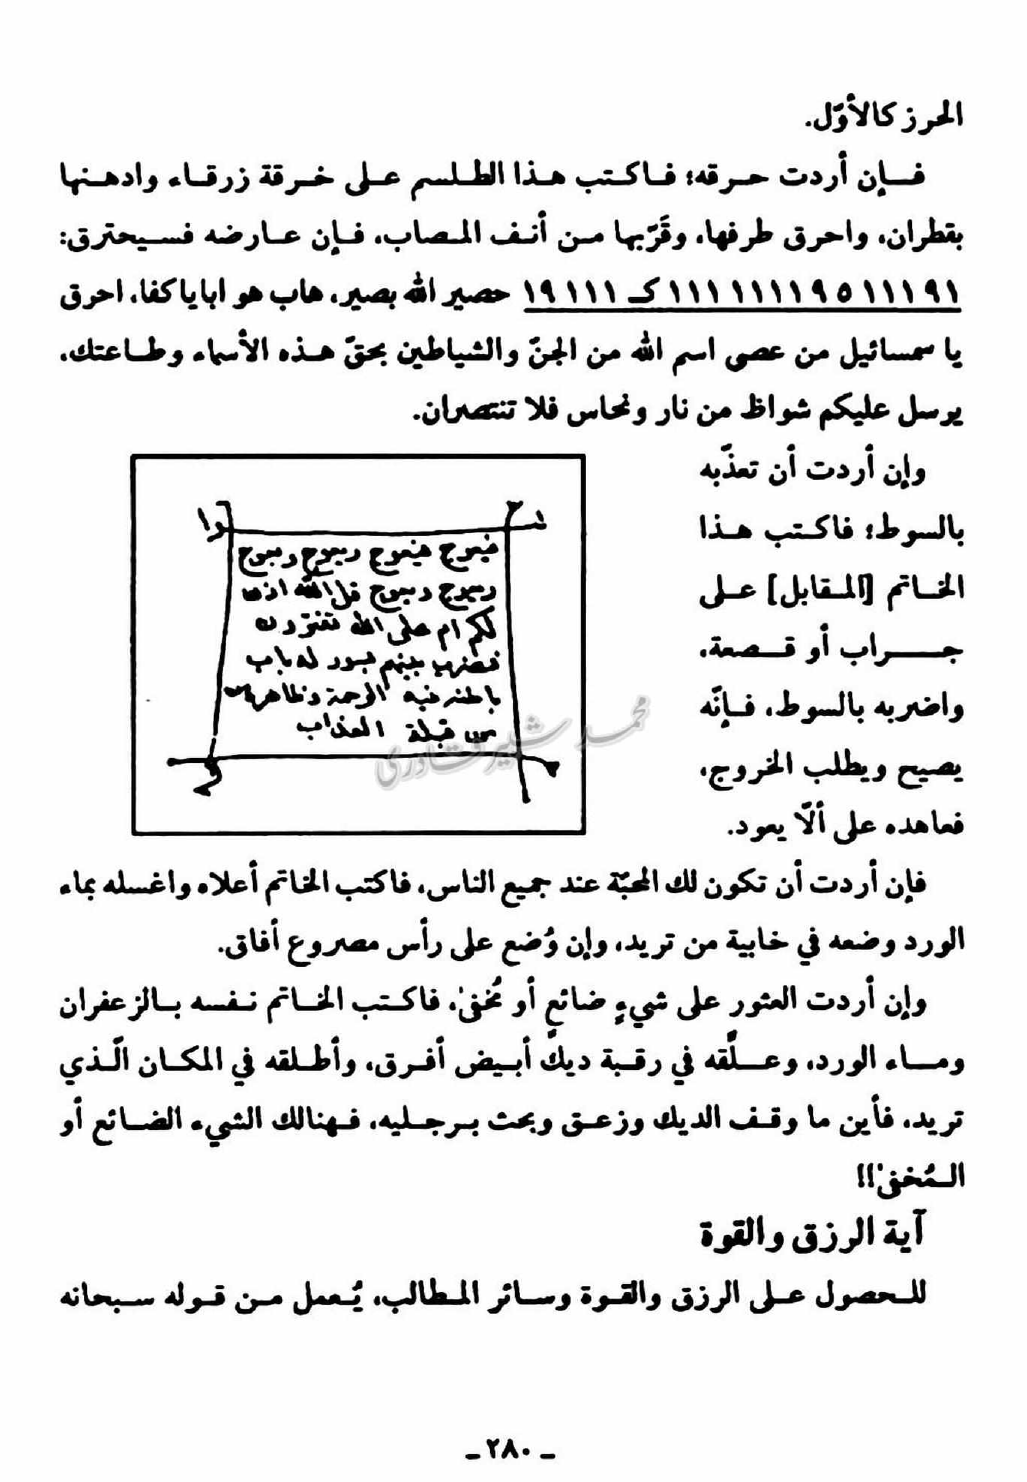 الحرز كالأوّل.
فإن أردت حرقه؛ فاكتب هذا الطلسم على خرقة زرقاء وادهنها
بقطران، واحرق طرفها، وقَرّبها من أنف المصاب، فإن عارضه فسيحترق:
١٩ ١١١ كـ ١١١ ١١١١١٩ ٥ ١١١٩١ حصير الله بصير، هاب هو اباياكفا، احرق
يا سمسائيل من عصى اسم الله من الجنّ والشياطين بحقّ هذه الأسماء وطاعتك،
يرسل عليكم شواظ من نار ونحاس فلا تنتصران.
وإن أردت أن تعذّبه
بالسوط؛ فاكتب هذا
الخاتم [المقابل] على
جراب أو قصعة،
واضربه بالسوط، فإنّه
يصيح ويطلب الخروج،
فعاهده على ألّا يعود.
هيعوج هيعوج ربعوج ربعوج
ربعوج ربعوج قل الله اذن
لكم ام على الله تفترون
فضرب بينهم بسور له باب
باطنه فيه الرحمة وظاهره
من قبلة العذاب
محمد شبير قادري
فإن أردت أن تكون لك المحبّة عند جميع الناس، فاكتب الخاتم أعلاه واغسله بماء
الورد وضعه في خابية من تريد، وإن وُضع على رأس مصروع أفاق.
وإن أردت العثور على شيءٍ ضائعٍ أو مُخفىٰ، فاكتب الخاتم نفسه بالزعفران
وماء الورد، وعلِّقه في رقبة ديك أبيض أفرق، وأطلقه في المكان الّذي
تريد، فأين ما وقف الديك وزعق وبحث برجليه، فهنالك الشيء الضائع أو
المُخفىٰ!!
آية الرزق والقوة
للحصول على الرزق والقوة وسائر المطالب، يُعمل من قوله سبحانه
ـ ٢٨٠ ـ